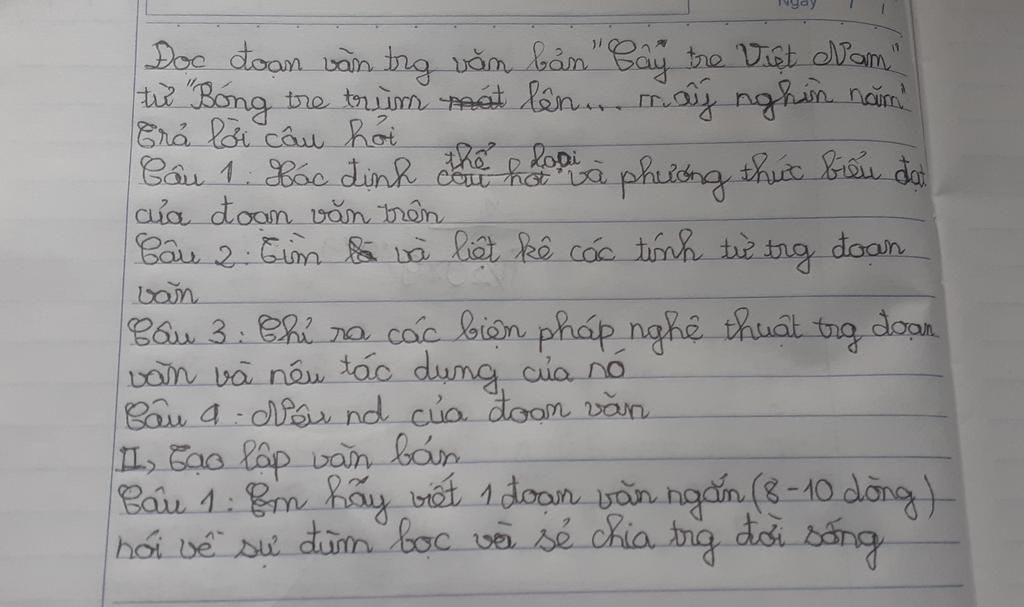 Ngày / /
Đọc đoạn văn trg văn bản "Cây tre Việt Nam"
từ "Bóng tre trùm mát lên... mấy nghìn năm"
Trả lời câu hỏi
thể loại
Câu 1: Xác định câu hỏi và phương thức biểu đạt
của đoạn văn trên
Câu 2: Tìm và liệt kê các tính từ trg đoạn
văn
Câu 3: Chỉ ra các biện pháp nghệ thuật trg đoạn
văn và nêu tác dụng của nó
Câu 4: Nêu nd của đoạn văn
II, Tạo lập văn bản
Câu 1: Em hãy viết 1 đoạn văn ngắn (8-10 dòng)
nói về sự đùm bọc và sẻ chia trg đời sống